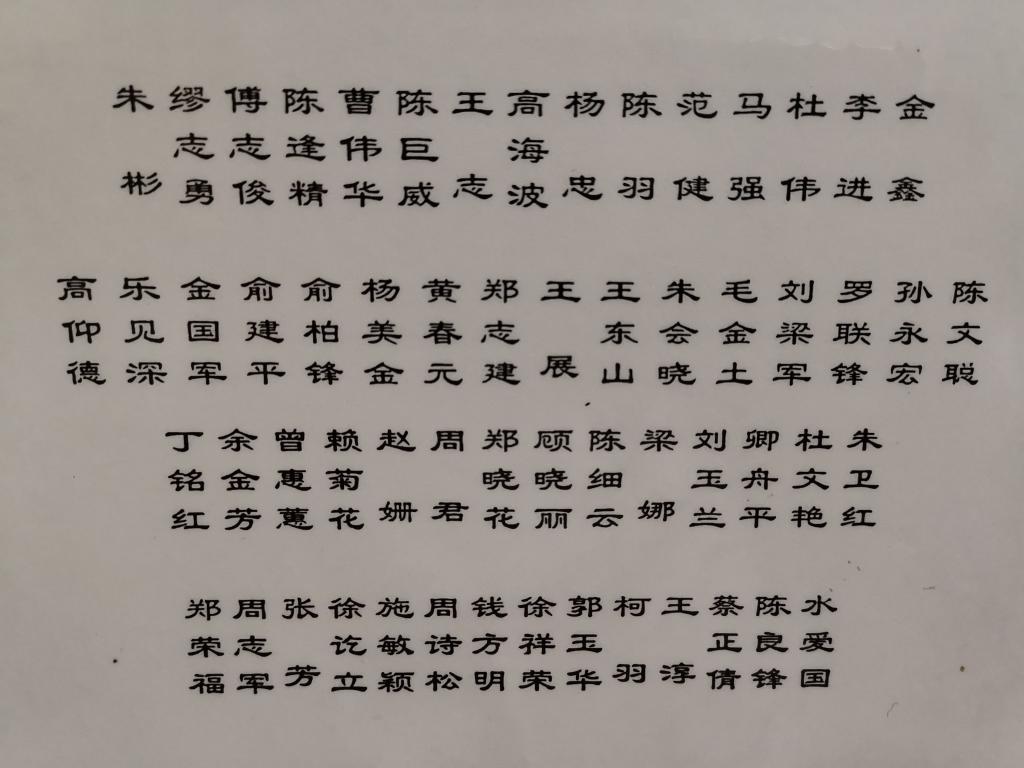 朱彬
缪志勇
傅志俊
陈逢精
曹伟华
陈巨威
王志
高海波
杨忠
陈羽
范健
马强
杜伟
李进
金鑫
高仰德
乐见深
金国军
俞建平
俞柏锋
杨美金
黄春元
郑志建
王展
王东山
朱会晓
毛金土
刘梁军
罗联锋
孙永宏
陈文聪
丁铭红
余金芳
曾惠蕙
赖菊花
赵姗
周君
郑晓花
顾晓丽
陈细云
梁娜
刘玉兰
卿舟平
杜文艳
朱卫红
郑荣福
周志军
张芳
徐讫立
施敏颖
周诗松
钱方明
徐祥荣
郭玉华
柯羽
王淳
蔡正倩
陈良锋
水爱国